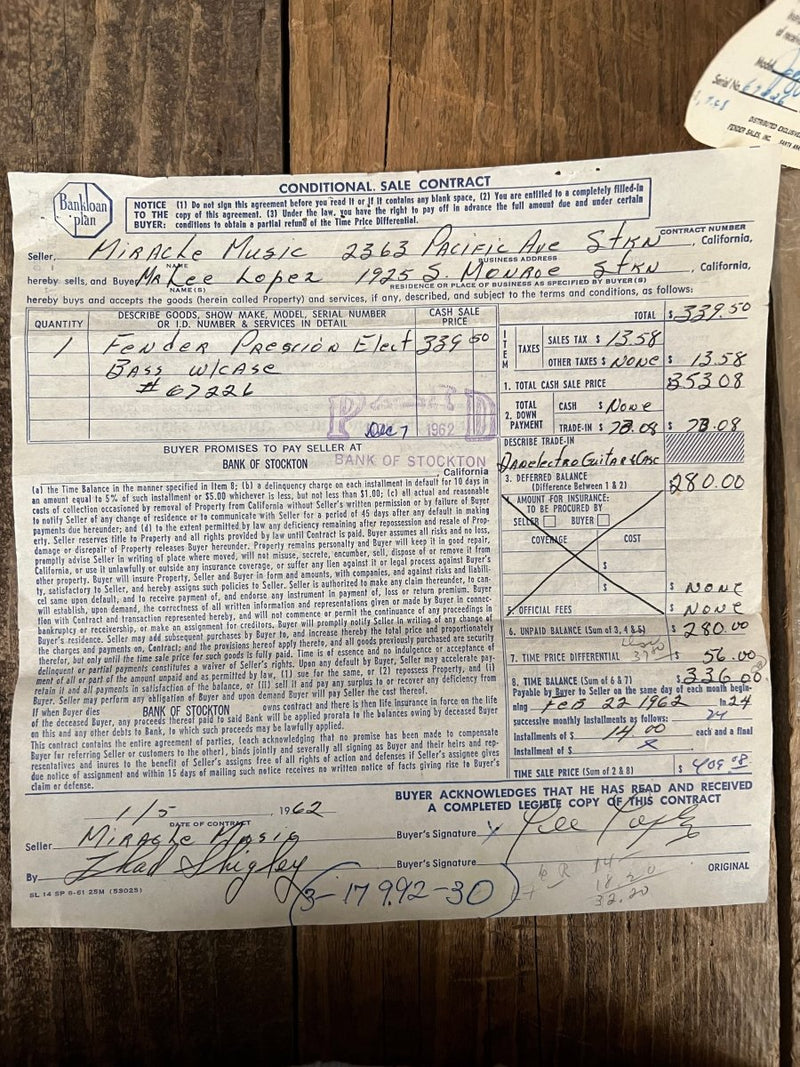 Bankloan plan
CONDITIONAL SALE CONTRACT
NOTICE TO THE BUYER: (1) Do not sign this agreement before you read it or if it contains any blank space, (2) You are entitled to a completely filled-in
copy of this agreement. (3) Under the law, you have the right to pay off in advance the full amount due and under certain
conditions to obtain a partial refund of the Time Price Differential.
CONTRACT NUMBER
Seller, Miracle Music 2363 Pacific Ave Stkn, California,
NAME BUSINESS ADDRESS
hereby sells, and Buyer Mr Lee Lopez 1925 S. Monroe Stkn, California,
NAME(S) RESIDENCE OR PLACE OF BUSINESS AS SPECIFIED BY BUYER(S)
hereby buys and accepts the goods (herein called Property) and services, if any, described, and subject to the terms and conditions, as follows:
QUANTITY DESCRIBE GOODS, SHOW MAKE, MODEL, SERIAL NUMBER OR I.D. NUMBER & SERVICES IN DETAIL CASH SALE PRICE
1 Fender Precsion Elect 339 50
Bass w/case
# 67226
PAID
Dec 7 1962
BANK OF STOCKTON
TOTAL $ 339.50
ITEM TAXES SALES TAX $ 13.58
OTHER TAXES $ None $ 13.58
1. TOTAL CASH SALE PRICE 353 08
2. TOTAL DOWN PAYMENT CASH $ None
TRADE-IN $ 73.08 $ 73.08
DESCRIBE TRADE-IN
Danelectro Guitar & Case
3. DEFERRED BALANCE (Difference Between 1 & 2) $ 280.00
4. AMOUNT FOR INSURANCE: TO BE PROCURED BY
SELLER BUYER
COVERAGE COST
$
$ $ None
5. OFFICIAL FEES $ None
6. UNPAID BALANCE (Sum of 3, 4 & 5) $ 280.00
7. TIME PRICE DIFFERENTIAL $ 56.00
8. TIME BALANCE (Sum of 6 & 7) $ 336.00
Payable by Buyer to Seller on the same day of each month begin-
ning Feb 22 1962 in 24
successive monthly installments as follows:
24 Installments of $ 14.00 each and a final
Installment of $ x
TIME SALE PRICE (Sum of 2 & 8) $ 409 08
BUYER PROMISES TO PAY SELLER AT
BANK OF STOCKTON, California
(a) the Time Balance in the manner specified in Item 8; (b) a delinquency charge on each installment in default for 10 days in
an amount equal to 5% of such installment or $5.00 whichever is less, but not less than $1.00; (c) all actual and reasonable
costs of collection occasioned by removal of Property from California without Seller's written permission or by failure of Buyer
to notify Seller of any change of residence or to communicate with Seller for a period of 45 days after any default in making
payments due hereunder; and (d) to the extent permitted by law any deficiency remaining after repossession and resale of Prop-
erty. Seller reserves title to Property and all rights provided by law until Contract is paid. Buyer assumes all risks and no loss,
damage or disrepair of Property releases Buyer hereunder. Property remains personalty and Buyer will keep it in good repair,
promptly advise Seller in writing of place where moved, will not misuse, secrete, encumber, sell, dispose of or remove it from
California, or use it unlawfully or outside any insurance coverage, or suffer any lien against it or legal process against Buyer's
other property. Buyer will insure Property, Seller and Buyer in form and amounts, with companies, and against risks and liabili-
ty, satisfactory to Seller, and hereby assigns such policies to Seller. Seller is authorized to make any claim thereunder, to can-
cel same upon default, and to receive payment of, and endorse any instrument in payment of, loss or return premium. Buyer
will establish, upon demand, the correctness of all written information and representations given or made by Buyer in connec-
tion with Contract and transaction represented hereby, and will not commence or permit the continuation of any proceedings in
bankruptcy or receivership, or make an assignment for creditors. Buyer will promptly notify Seller in writing of any change of
Buyer's residence. Seller may add subsequent purchases by Buyer to, and increase thereby the total price and proportionately
the charges and payments on, Contract; and the provisions hereof apply thereto, and all goods previously purchased are security
therefor, but only until the time sale price for such goods is fully paid. Time is of essence and no indulgence or acceptance of
delinquent or partial payments constitutes a waiver of Seller's rights. Upon any default by Buyer, Seller may accelerate pay-
ment of all or part of the amount unpaid and as permitted by law, (1) sue for the same, or (2) repossess Property, and (i)
retain it and all payments in satisfaction of the balance, or (ii) sell it and pay any surplus to or recover any deficiency from
Buyer. Seller may perform any obligation of Buyer and upon demand Buyer will pay Seller the cost thereof.
If when Buyer dies BANK OF STOCKTON owns contract and there is then life insurance in force on the life
of the deceased Buyer, any proceeds thereof paid to said Bank will be applied prorata to the balances owing by deceased Buyer
on this and any other debts to Bank, to which such proceeds may be lawfully applied.
This contract contains the entire agreement of parties, (each acknowledging that no promise has been made to compensate
Buyer for referring Seller or customers to the other), binds jointly and severally all signing as Buyer and their heirs and rep-
resentatives and inures to the benefit of Seller's assigns free of all rights of action and defenses if Seller's assignee gives
due notice of assignment and within 15 days of mailing such notice receives no written notice of facts giving rise to Buyer's
claim or defense.
BUYER ACKNOWLEDGES THAT HE HAS READ AND RECEIVED
A COMPLETED LEGIBLE COPY OF THIS CONTRACT
1/5, 1962
DATE OF CONTRACT
Seller Miracle Music Buyer's Signature x Lee Lopez
By Thad Shigley Buyer's Signature
ORIGINAL
SL 14 SP 8-61 25M (53025)
3-17992-30
14
18.20
32.20
Model
Serial No. 67226
DISTRIBUTED EXCLUSIVE
FENDER SALES, INC. SANTA ANA